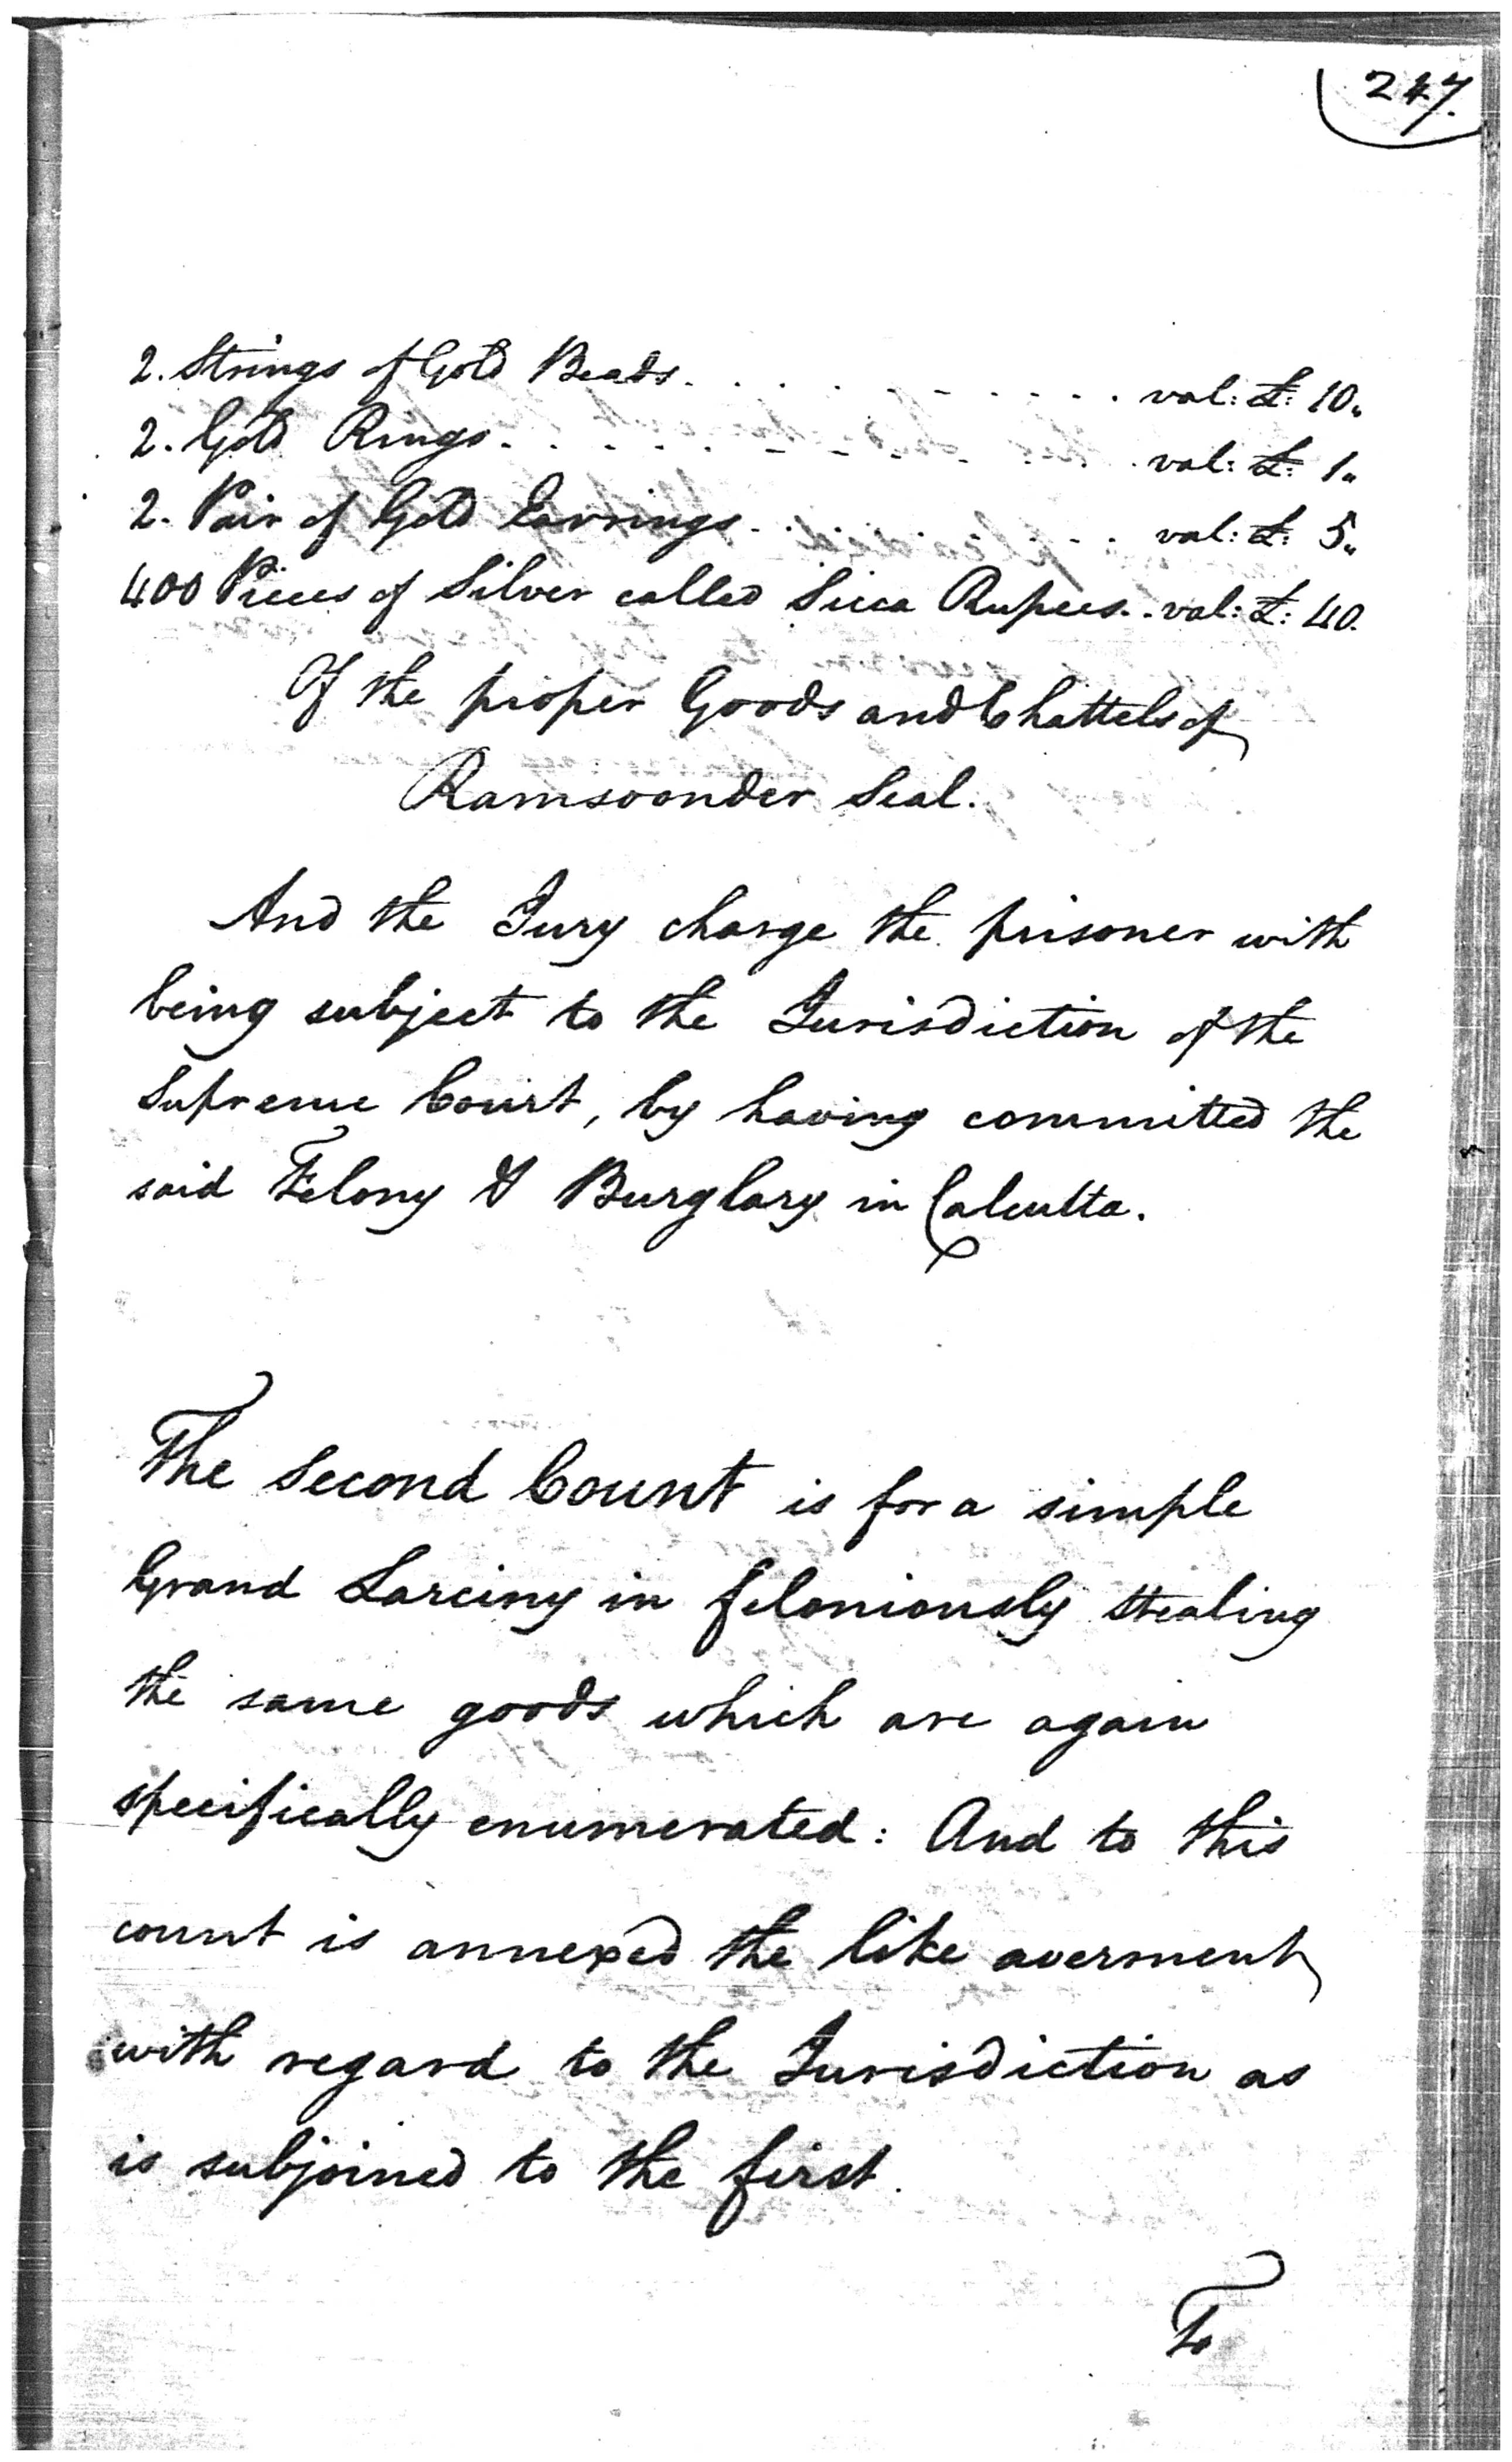 247.
2. Strings of Gold Beads. . . . . . . . . . . val: £: 10"
2. Gold Rings. . . . . . . . . . . . val: £: 1"
2. Pair of Gold Earrings. . . . . . . . . val: £: 5"
400 Pieces of Silver called Sicca Rupees. . val: £: 40.
Of the proper Goods and Chattels of
Ramsoonder Seal.
And the Jury charge the prisoner with
being subject to the Jurisdiction of the
Supreme Court, by having committed the
said Felony & Burglary in Calcutta.
The Second Count is for a simple
Grand Larciny in feloniously stealing
the same goods which are again
specifically enumerated: And to this
count is annexed the like averment
with regard to the Jurisdiction as
is subjoined to the first.
To